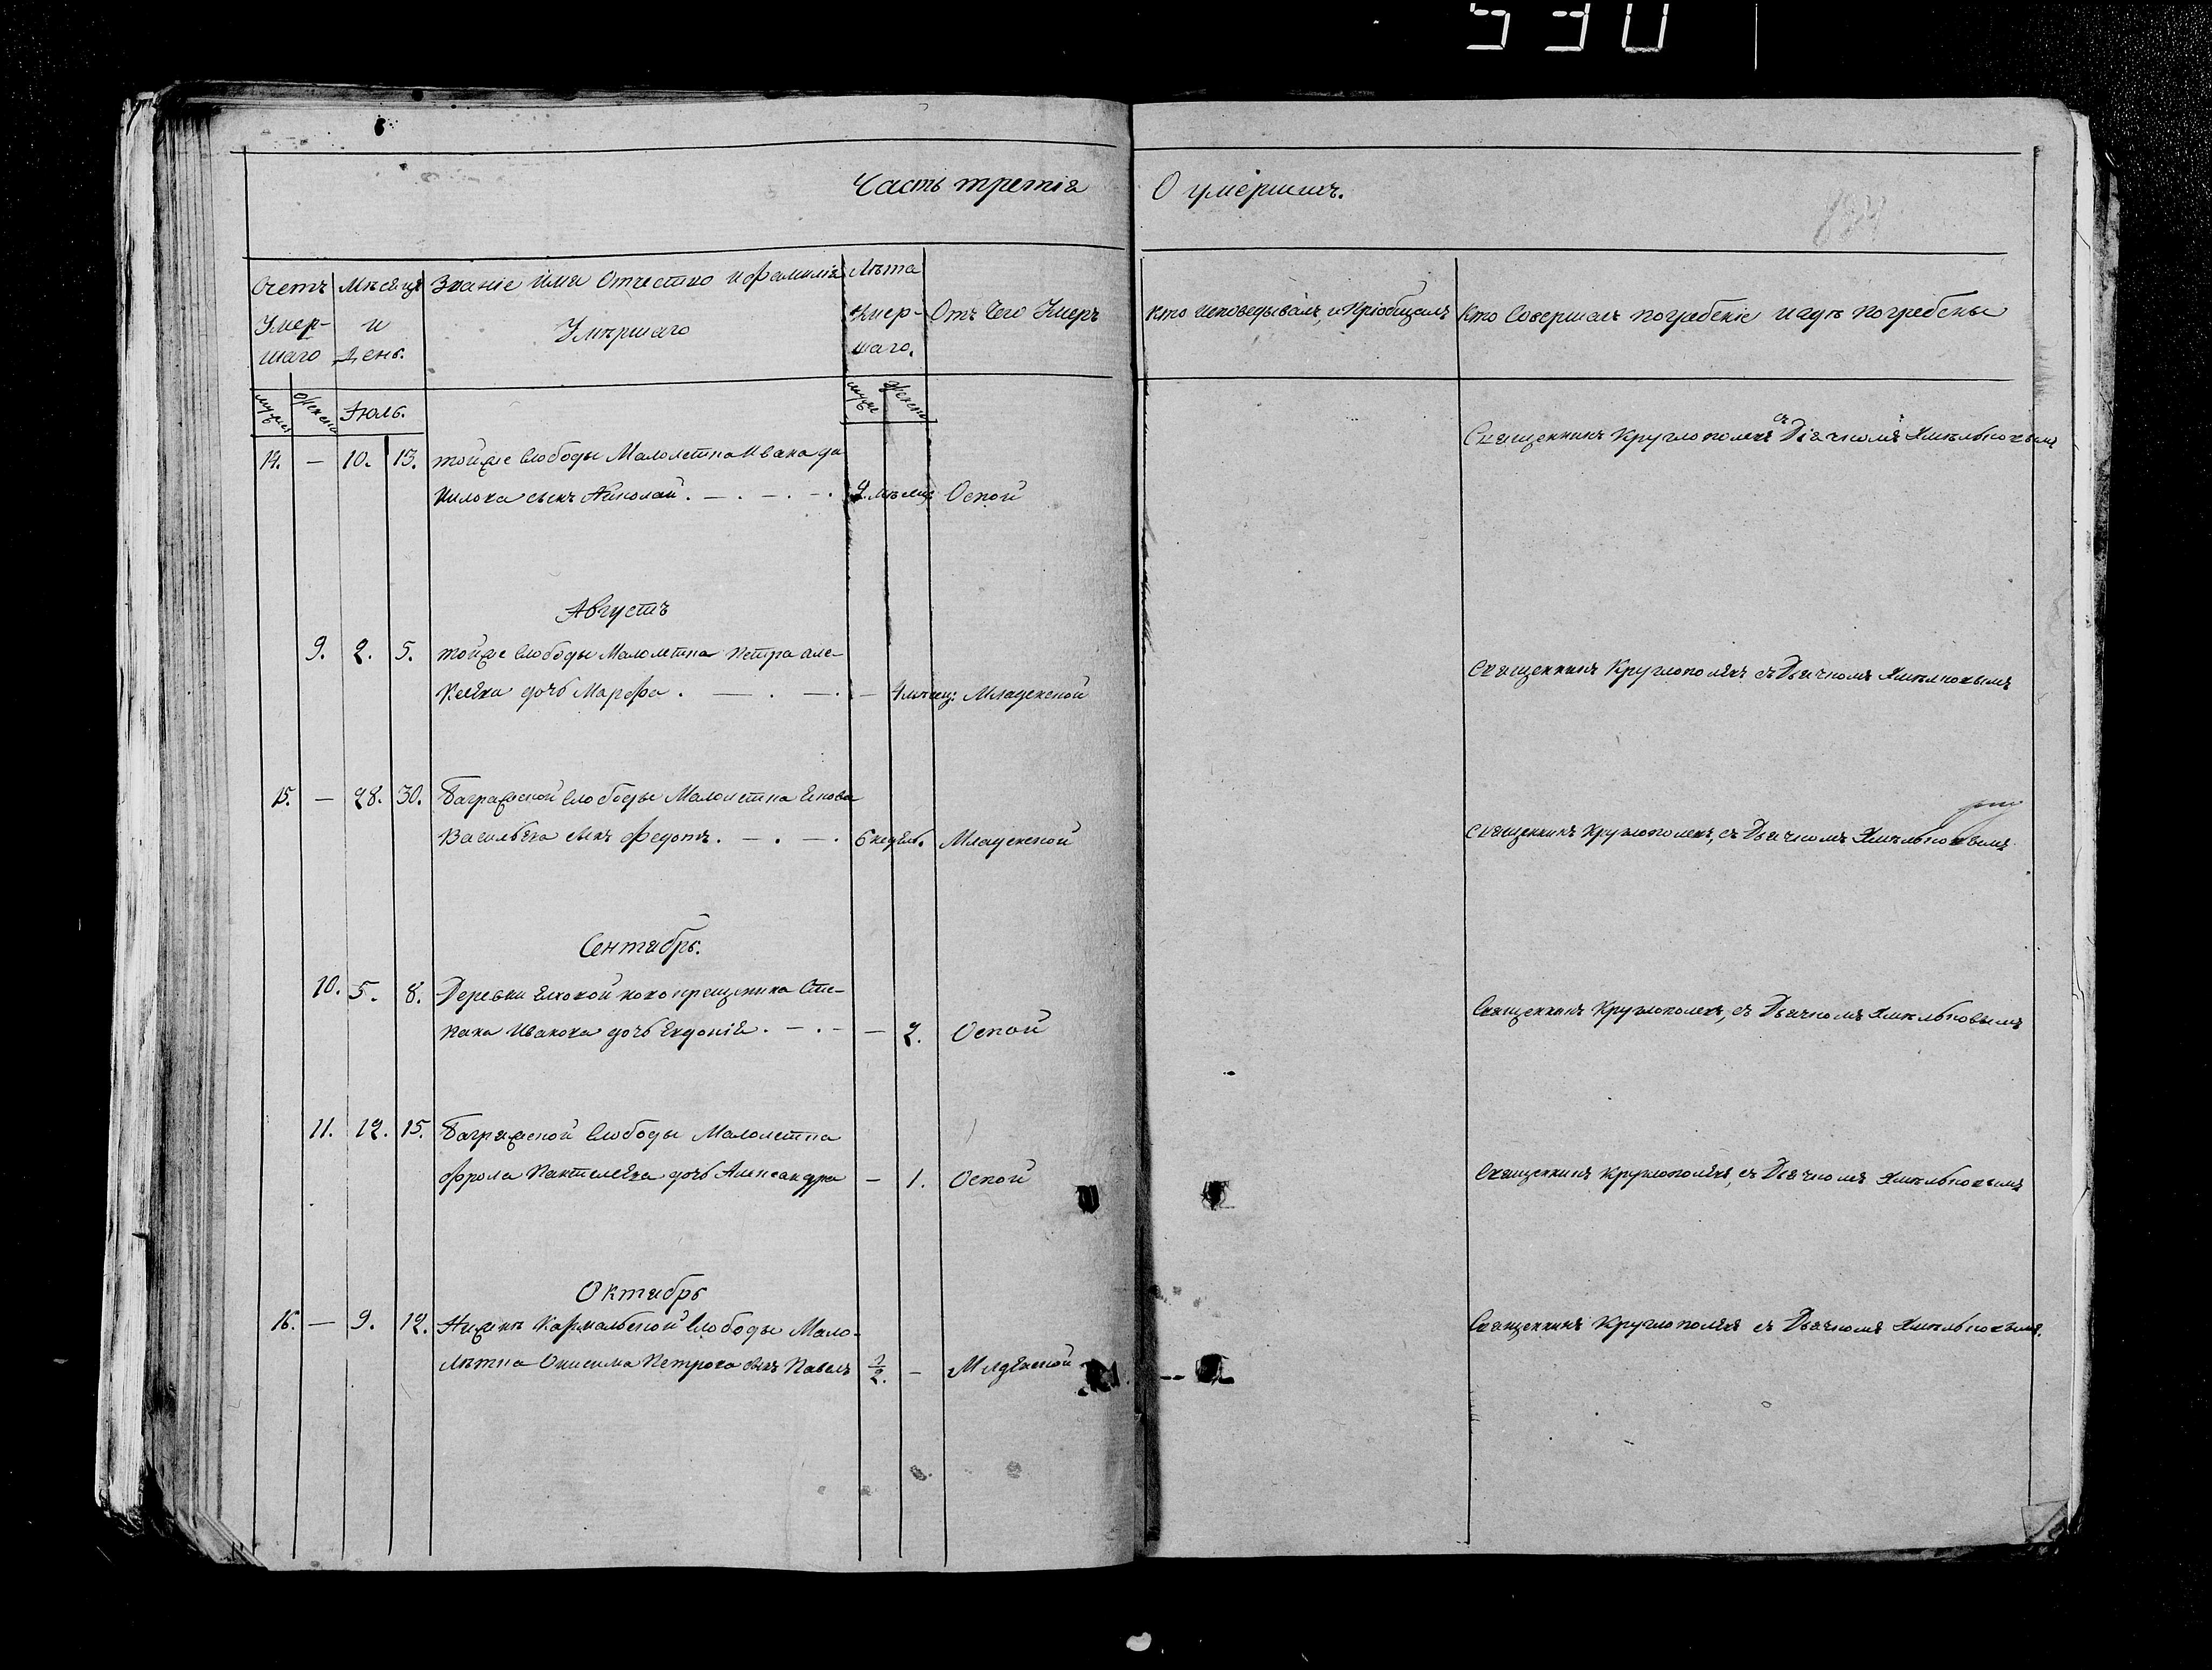 530
Часть третія О умершихъ.
Счетъ Умер-шаго
Мѣсяцъ и День.
Званіе Имя Отчество и Фамилія Умѣршаго
Лѣта Умер-шаго.
Отъ Чего Умеръ
Кто исповедывалъ, и Пріобщалъ
Кто Совершалъ погребеніе и гдѣ погребены
мужеск женска Іюль. мужс женска
14. — 10. 13. тойже Слободы Малолетка Ивана Да
нилова сынъ Николай . — . — . — . 9. мѣсяц Оспой
Священникъ Круглополевъ съ Діячкомъ Хмѣльновымъ
Августъ
9. 2. 5. тойже Слободы Малолетка Петра Але-
ксѣева дочь Марфа . — . — . — 4 мѣсяц: Младенской
Священникъ Круглополевъ съ Дьячкомъ Хмѣлновымъ
15. — 28. 30. Багражской Слободы Малолетка
Васильева сынъ Федотъ. — . — . 6 недѣль. Младенской
Священникъ Круглополевъ, съ Дьячкомъ Хмѣльновымъ
Сентябрь.
10. 5. 8. Деревни Елховой новокрещенина Сте-
пана Иванова дочь Евдокія . — . — — 2. Оспой
Священникъ Круглополевъ, съ Дьячкомъ Хмѣльновымъ
11. 12. 15. Багражской Слободы Малолетка
Фрола Пантелеева дочь Александра — 1. Оспой
Священникъ Круглополевъ, съ Дьячкомъ Хмѣльновымъ
Октябрь
16. — 9. 12. Нижне Кармальской Слободы Мало-
лѣтка Онисима Петрова сынъ Павелъ 1/2. — Млдѣнской
Священникъ Круглополевъ съ Дьячкомъ Хмѣльновымъ.